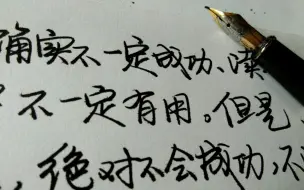 确实不一定成功、读
不一定有用。但是
绝对不会成功,不